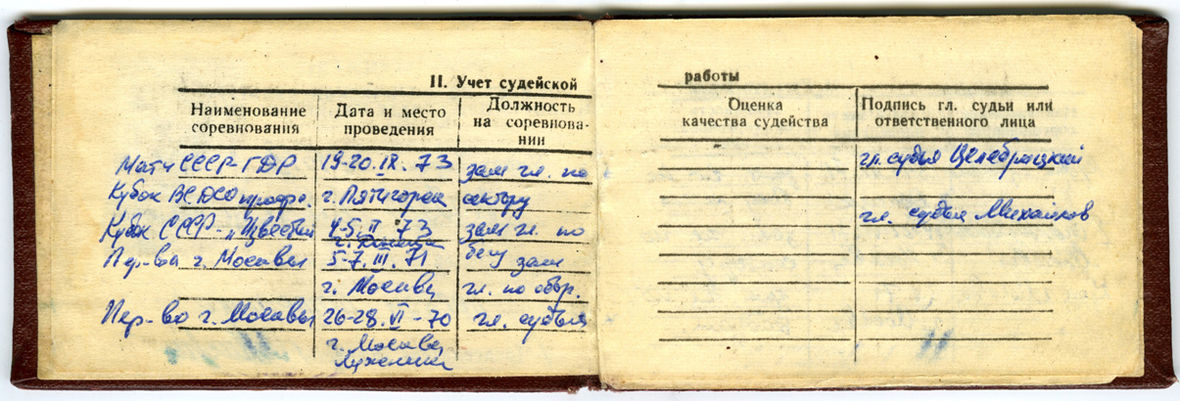 II. Учет судейской работы
Наименование соревнования
Дата и место проведения
Должность на соревнова-нии
Оценка качества судейства
Подпись гл. судьи или ответственного лица
Матч СССР ГДР 19-20.IX.73 зам гл. по гл. судья
Кубок ВСДСО профс. г. Пятигорск сектору
Кубок СССР - "Известий 4-5 II 73 зам гл. по гл. судья Михайлов
г.
Пер-ва г. Москвы 5-7.III.71 бегу зам
г. Москва гл. по обор.
Пер-во г. Москвы 26-28.VI-70 гл. судья
г. Москва
Лужники